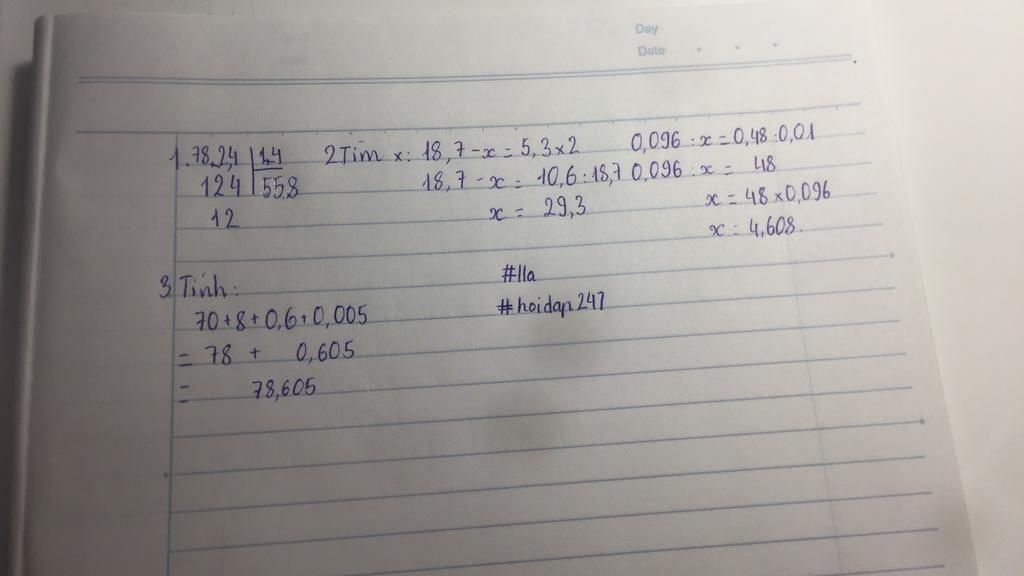 Day
Date
1. 78,2,4 | 1,4
124 | 55,8
12
2 Tìm x: 18,7 - x = 5,3 x 2
18,7 - x = 10,6 : 18,7
x = 29,3
0,096 : x = 0,48 : 0,01
0,096 : x = 48
x = 48 x 0,096
x = 4,608.
3. Tính:
70 + 8 + 0,6 + 0,005
= 78 + 0,605
= 78,605
#lla
#hoidap247